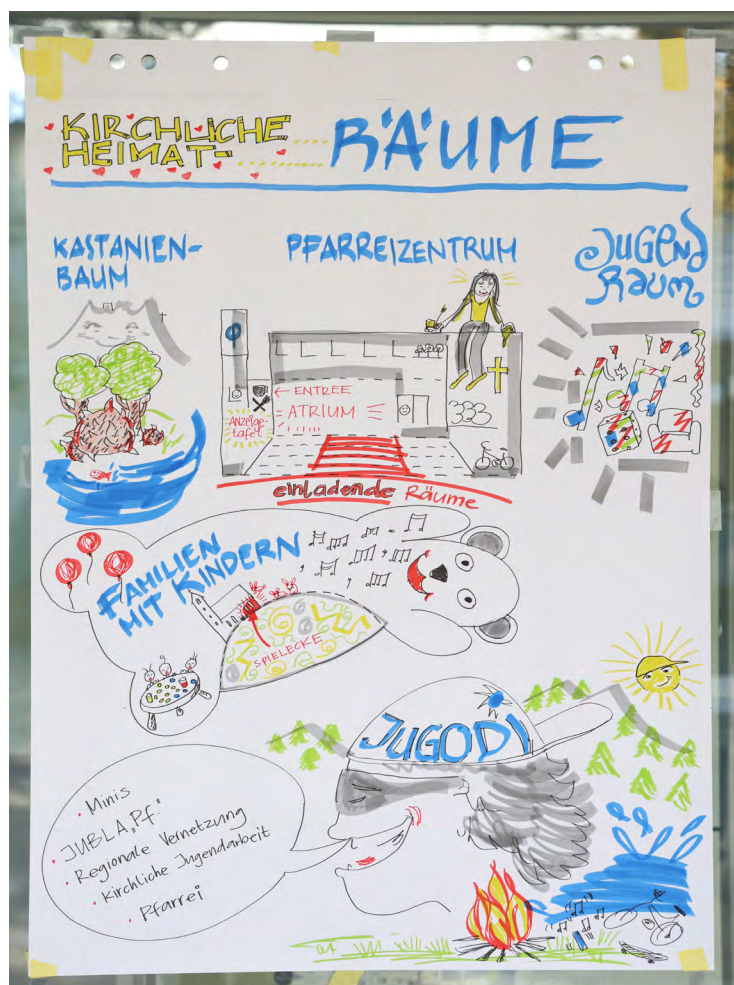 KIRCHLICHE
HEIMAT-
RÄUME
KASTANIEN-
BAUM
PFARREIZENTRUM
JUGEND
RAUM
← ENTREE
ATRIUM
Anzeige
tafel
einladende Räume
FAMILIEN
MIT KINDERN
SPIELECKE
JUGODI
· Minis
· JUBLA „Pf."
· Regionale Vernetzung
· Kirchliche Jugendarbeit
· Pfarrei